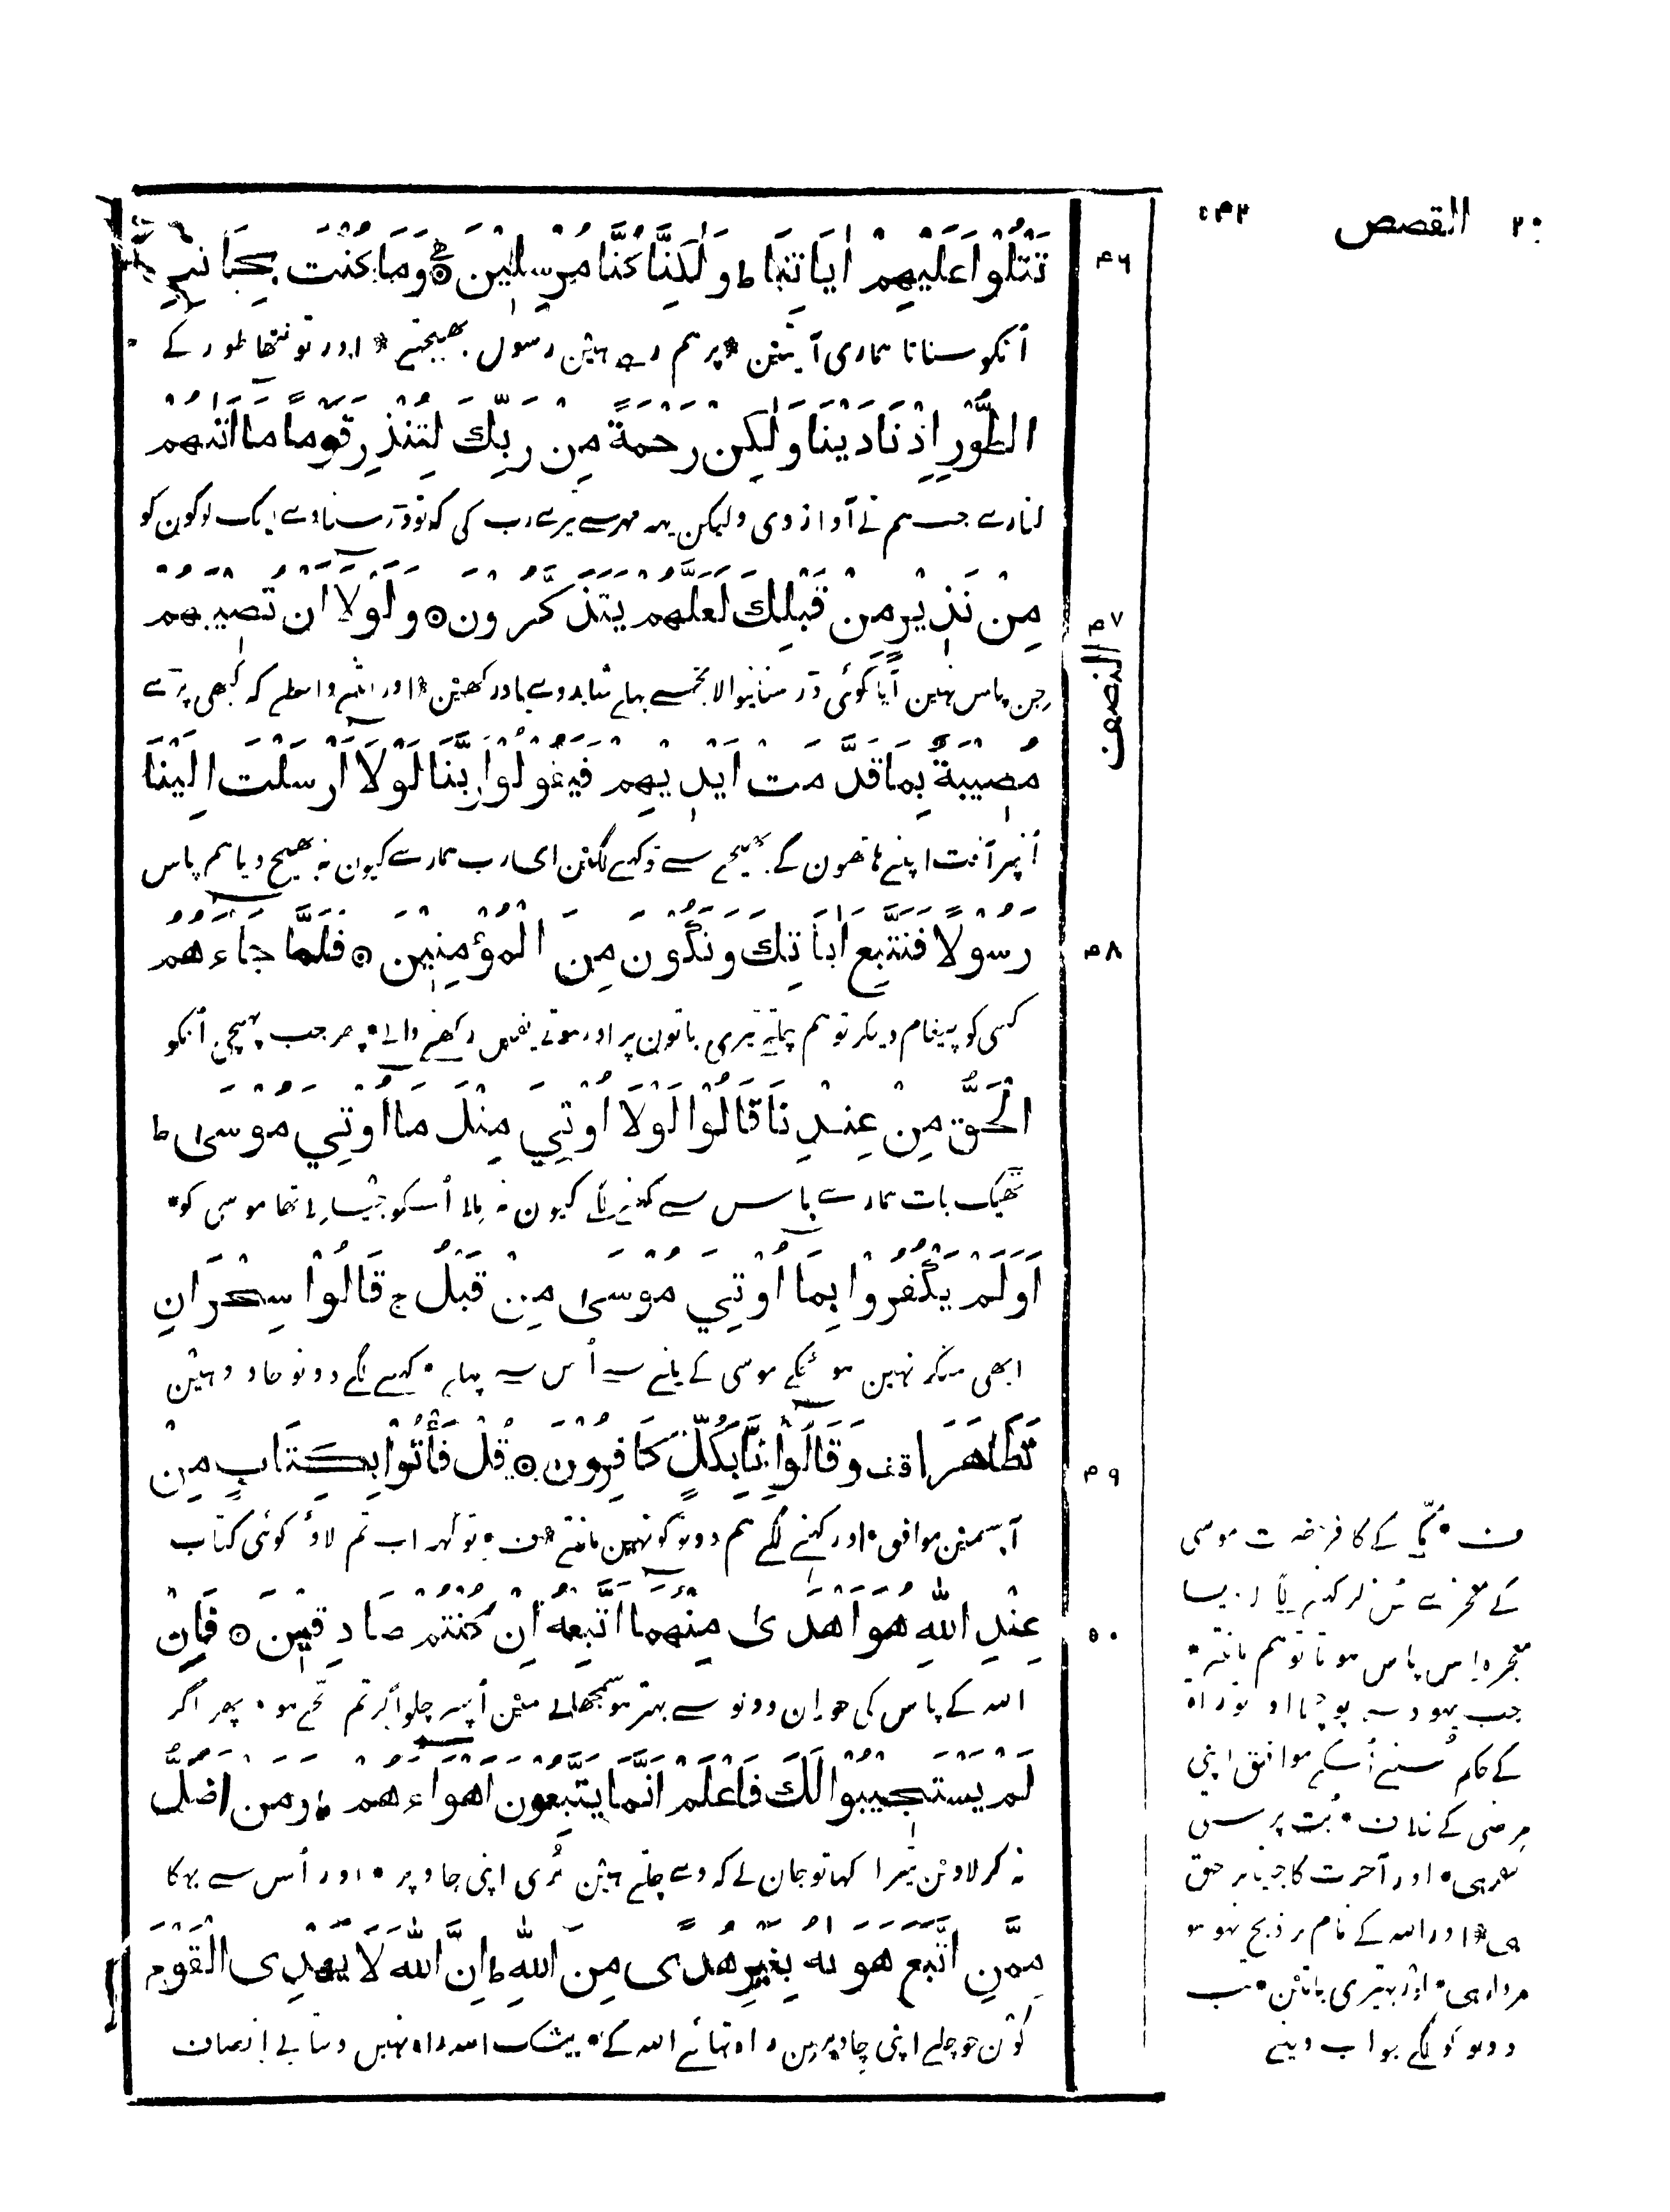 ٢٠ القصص ٥٤٢
تَتْلُوْا عَلَيْهِمْ اٰيَاتِنَا ط وَلٰكِنَّا كُنَّا مُرْسِلِيْنَ ۞ وَمَا كُنْتَ بِجَانِبِ
٤٦
اُنکو سناتا ہماری آیتین * پر ہم رہے ہین رسول بھیجتے * اور تو نتھا طور کے
الطُّوْرِ اِذْ نَادَيْنَا وَلٰكِنْ رَحْمَةً مِنْ رَبِّكَ لِتُنْذِرَ قَوْمًا مَا اَتٰىهُمْ
کنارے جب ہم نے آواز دی ولیکن یہہ مہر سے تیرے رب کی کہ تو ڈر سناوے ایک لوگون کو
مِنْ نَذِيْرٍ مِنْ قَبْلِكَ لَعَلَّهُمْ يَتَذَكَّرُوْنَ ۞ وَلَوْلَا اَنْ تُصِيْبَهُمْ
٤٧
النصف
جن پاس نہین آیا کوئی ڈر سنانیوالا تجھسے پہلے شاید وے یاد رکھین * اور اتنے واسطے کہ کبھی پڑے
مُصِيْبَةٌ بِمَا قَدَّمَتْ اَيْدِيْهِمْ فَيَقُوْلُوْا رَبَّنَا لَوْلَا اَرْسَلْتَ اِلَيْنَا
اُنپر آفت اپنے ہاتھون کے بھیجے سے تو کہنے لگین ای رب ہمارے کیون نہ بھیج دیا ہم پاس
رَسُوْلًا فَنَتَّبِعَ اٰيَاتِكَ وَنَكُوْنَ مِنَ الْمُؤْمِنِيْنَ ۞ فَلَمَّا جَاءَهُمُ
٤٨
کسی کو پیغام دیکر تو ہم چلتے تیری باتون پر اور ہوتے یقین رکھنے والے * پھر جب پہنچی اُنکو
الْحَقُّ مِنْ عِنْدِنَا قَالُوْا لَوْلَا اُوْتِيَ مِثْلَ مَا اُوْتِيَ مُوْسٰى ط
ٹھیک بات ہمارے پاس سے کہنے لگے کیون نہ ملا اُسکو جیسا ملے تھا موسی کو *
اَوَلَمْ يَكْفُرُوْا بِمَا اُوْتِيَ مُوْسٰى مِنْ قَبْلُ ج قَالُوْا سِحْرَانِ
ابھی منکر نہین ہو چکے موسی کے پانے سے اُس سے پہلے * کہنے لگے دونو جادو ہین
تَظَاهَرَا قف وَقَالُوْا اِنَّا بِكُلٍّ كَافِرُوْنَ ۞ قُلْ فَأْتُوْا بِكِتَابٍ مِنْ
٤٩
آپسمین موافق * اور کہنے لگے ہم دونو کو نہین مانتے * ف * تو کہہ اب تم لاؤ کوئی کتاب
عِنْدِ اللّٰهِ هُوَ اَهْدٰى مِنْهُمَا اَتَّبِعْهُ اِنْ كُنْتُمْ صَادِقِيْنَ ۞ فَاِنْ
٥٠
اللہ کے پاس کی جو ان دونو سے بہتر ہو سمجھانے مین اُسپر چلو اگر تم سچے ہو * پھر اگر
لَمْ يَسْتَجِيْبُوْا لَكَ فَاعْلَمْ اَنَّمَا يَتَّبِعُوْنَ اَهْوَاءَهُمْ ط وَمَنْ اَضَلُّ
نہ کر لاوین تیرا کہا تو جان لے کہ وے چلتے ہین نری اپنی چاو پر * اور اُس سے بہکا
مِمَّنِ اتَّبَعَ هَوٰىهُ بِغَيْرِ هُدًى مِنَ اللّٰهِ ط اِنَّ اللّٰهَ لَا يَهْدِى الْقَوْمَ
کون جو چلے اپنی چاو پر بن راہ بتائے اللہ کے * بیشک اللہ راہ نہین دیتا بے انصاف
ف * مکے کے کافر حضرت موسی
کے معجزے سُن کر کہنے لگے ایسا
معجزہ اس پاس ہوتا تو ہم مانتے *
جب یہود سے پوچھا اور توراۃ
کے حکم سنے اُسکے موافق اپنی
مرضی کے خلاف * بت پرستی
کفر ہی * اور آخرت کا جینا بر حق
ہی * اور اللہ کے نام پر ذبح نہو سو
مردار ہی * اور بہتیری باتین * تب
دونو کو لگے جواب دینے